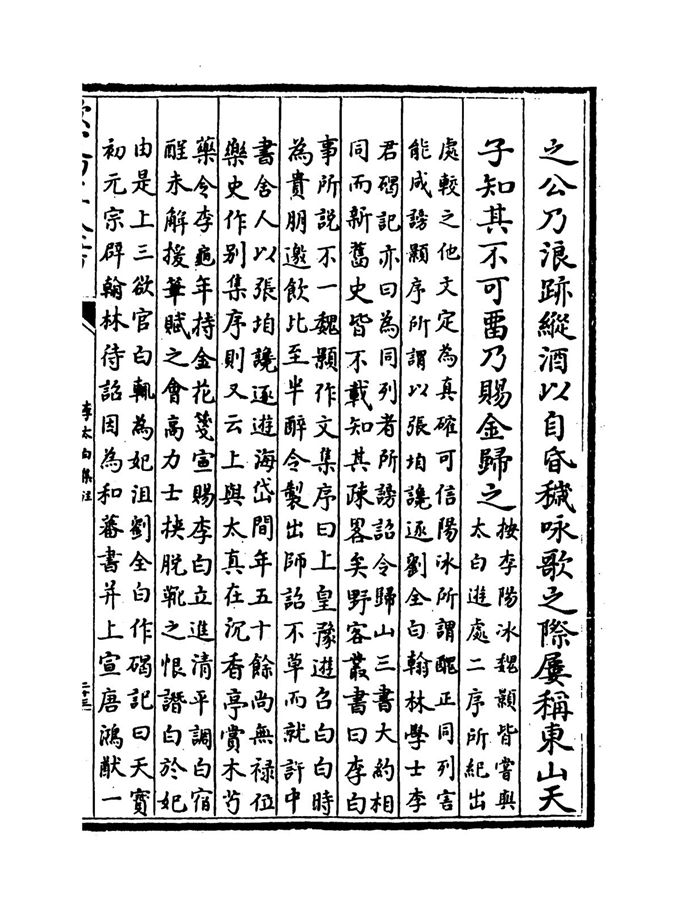 之公乃浪跡縱酒以自昏穢咏歌之際屢稱東山天
子知其不可畱乃賜金歸之
按李陽冰魏顥皆嘗與
太白遊處二序所紀出
處較之他文定為真確可信陽冰所謂醜正同列害
能成謗顥序所謂以張垍讒逐劉全白翰林學士李
君碣記亦曰為同列者所謗詔令歸山三書大約相
同而新舊史皆不載知其疎畧矣野客叢書曰李白
事所説不一魏顥作文集序曰上皇豫遊召白白時
為貴朋邀飲比至半醉令製出師詔不草而就許中
書舍人以張垍讒逐遊海岱間年五十餘尚無禄位
樂史作别集序則又云上與太真在沉香亭賞木芍
藥令李龜年持金花箋宣賜李白立進清平調白宿
酲未解援筆賦之會高力士挾脱靴之恨譖白於妃
由是上三欲官白輒為妃沮劉全白作碣記曰天寶
初元宗辟翰林待詔因為和蕃書并上宣唐鴻猷一
李太白集注